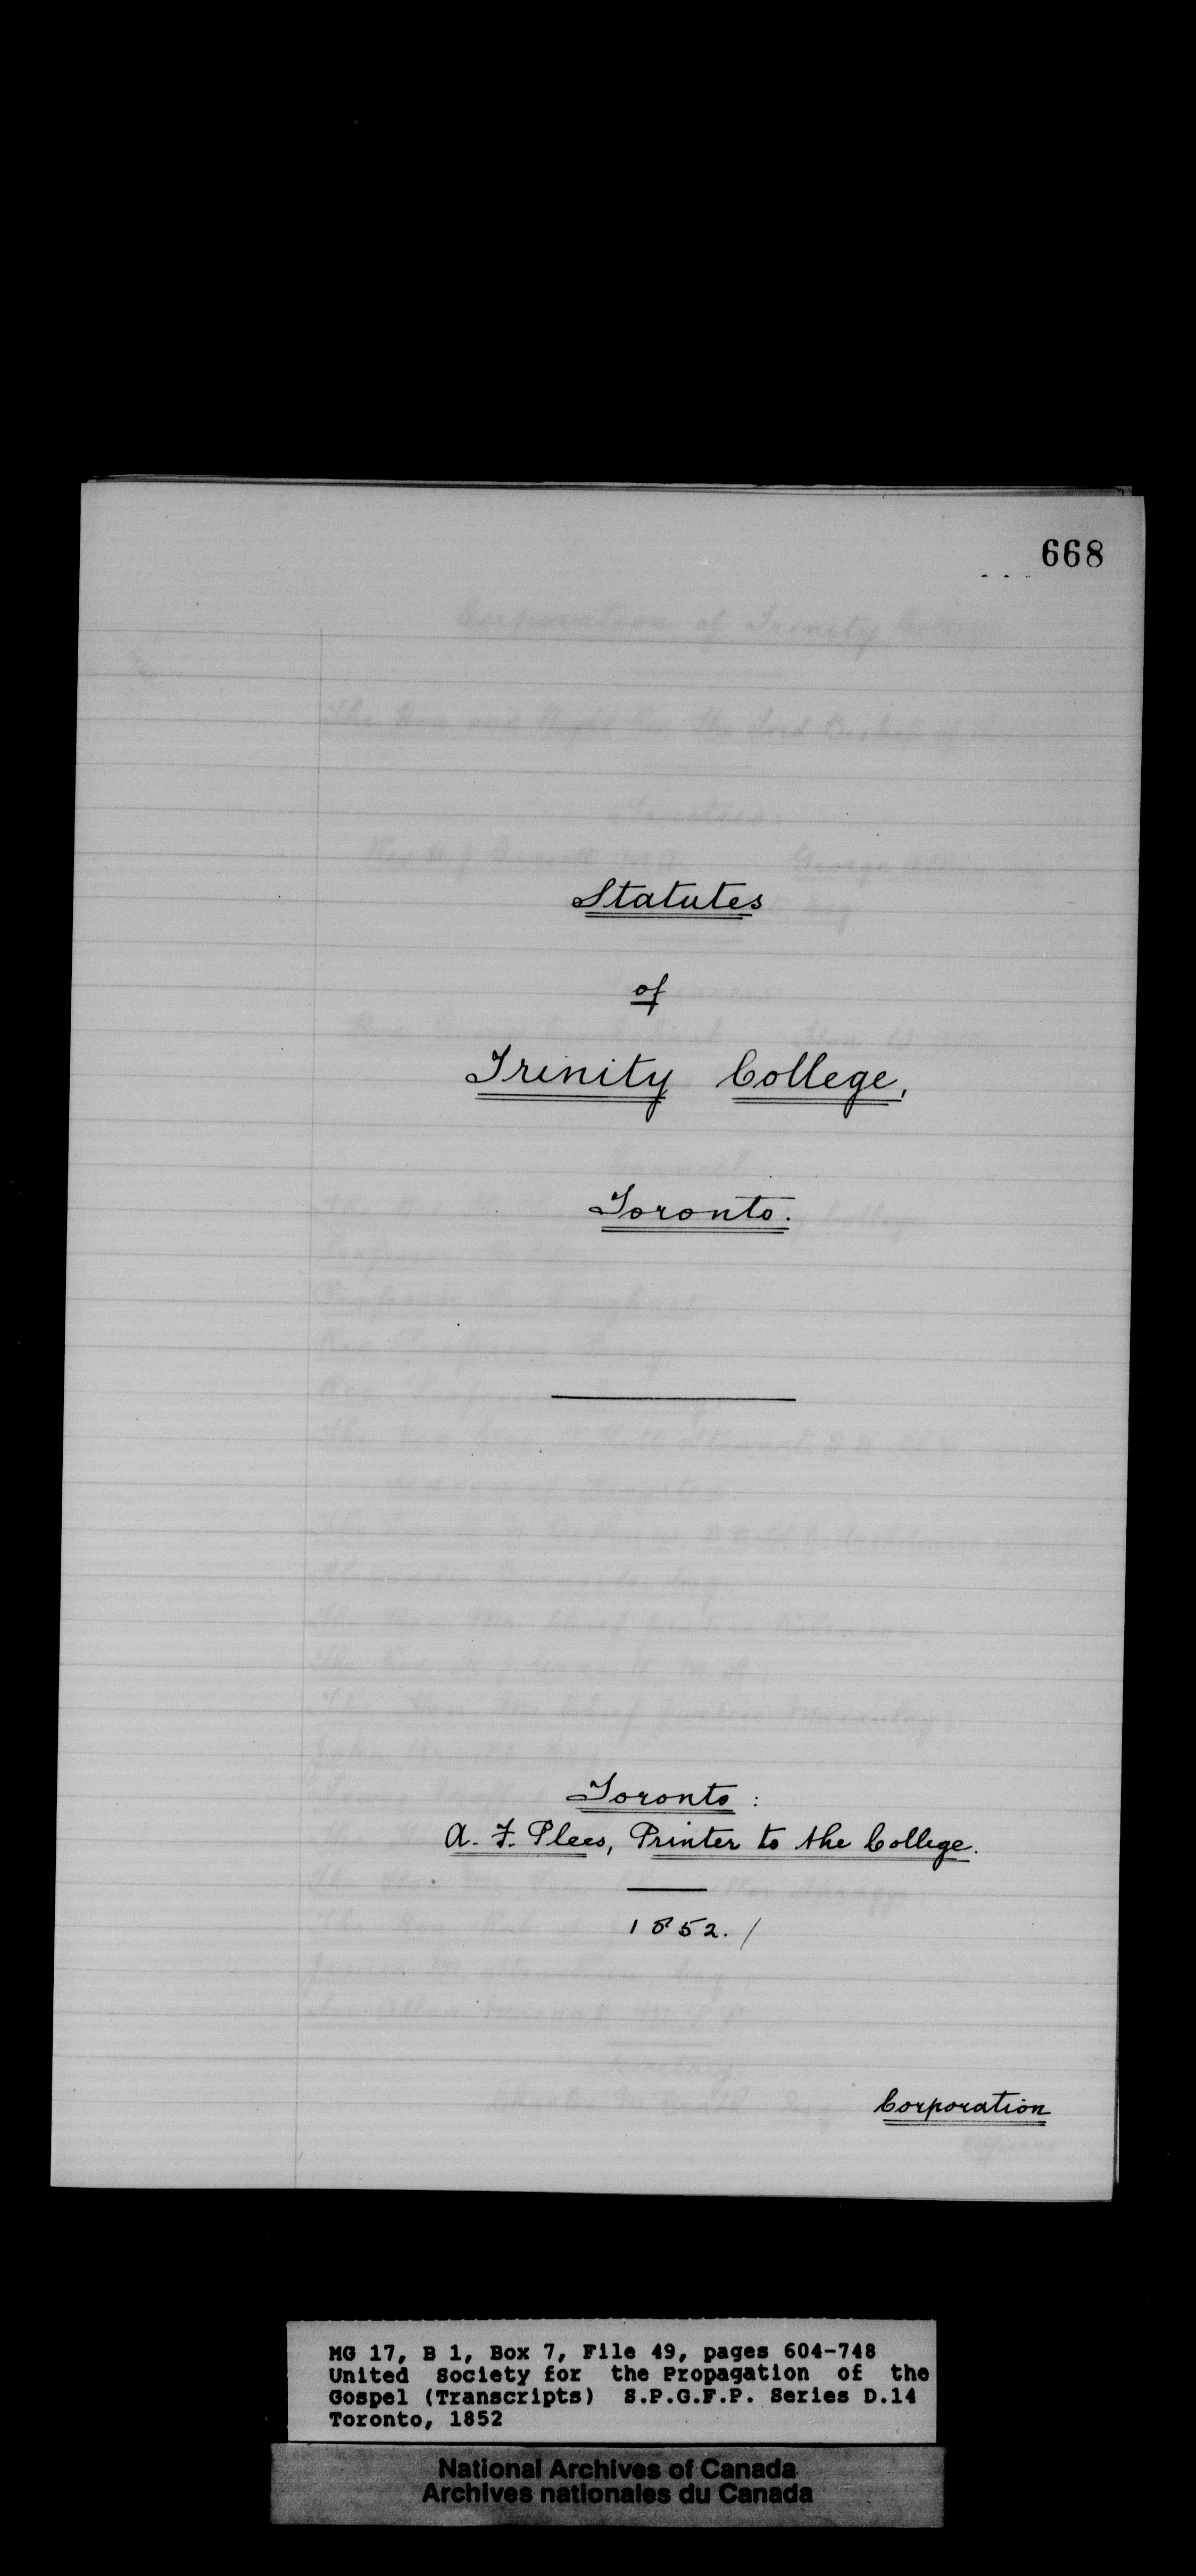 668
Statutes
of
Trinity College,
Toronto.
Toronto :
A. F. Plees, Printer to the College.
1852. /
Corporation
MG 17, B 1, Box 7, File 49, pages 604-748
United Society for the Propagation of the
Gospel (Transcripts) S.P.G.F.P. Series D.14
Toronto, 1852
National Archives of Canada
Archives nationales du Canada